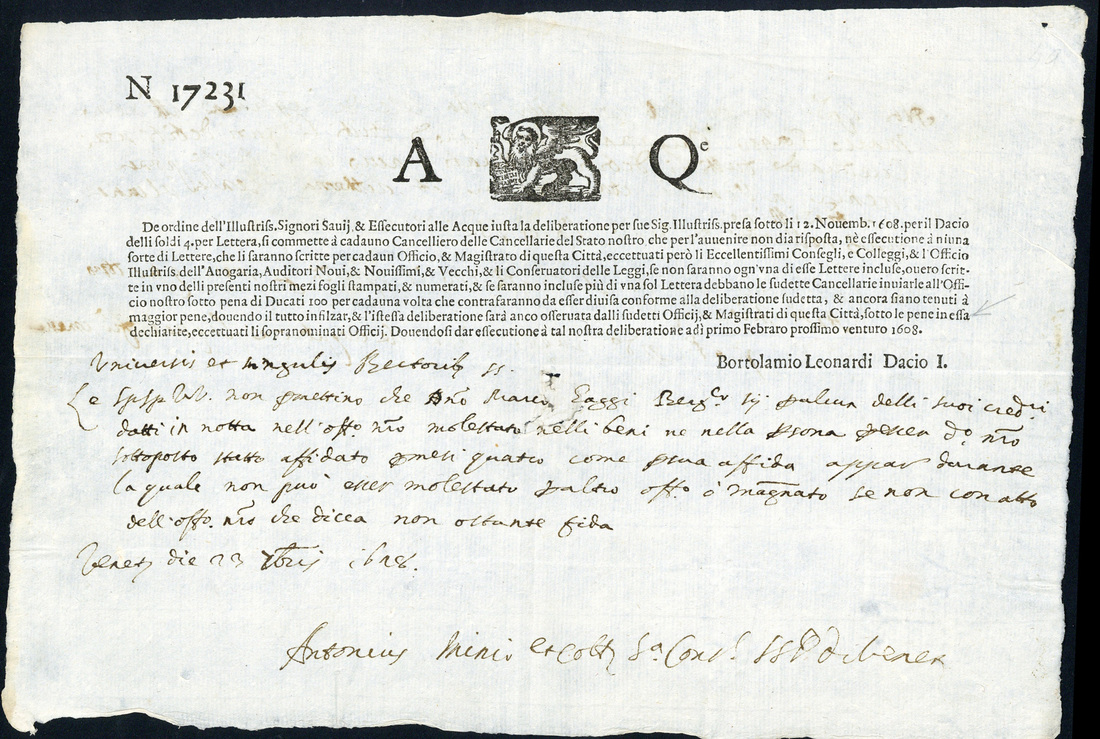 N 17231
A Q^e
De ordine dell'Illustriss. Signori Sauij, & Essecutori alle Acque iusta la deliberatione per sue Sig. Illustriss. presa sotto li 12. Nouemb. 1608. per il Dacio
delli soldi 4. per Lettera, si commette à cadauno Cancelliero delle Cancellarie del Stato nostro, che per l'auuenire non dia risposta, nè essecutione à niuna
sorte di Lettere, che li saranno scritte per cadaun Officio, & Magistrato di questa Città, eccettuati però li Eccellentissimi Consegli, e Colleggi, & l'Officio
Illustriss. dell'Auogaria, Auditori Noui, & Nouissimi, & Vecchi, & li Conseruatori delle Leggi, se non saranno ogn'vna di esse Lettere incluse, ouero scrit-
te in vno delli presenti nostri mezi fogli stampati, & numerati, & se saranno incluse più di vna sol Lettera debbano le sudette Cancellarie inuiarle all'Offi-
cio nostro sotto pena di Ducati 100 per cadauna volta che contrafaranno da esser diuisa conforme alla deliberatione sudetta, & ancora siano tenuti à
maggior pene, douendo il tutto infilzar, & l'istessa deliberatione sarà anco osseruata dalli sudetti Officij, & Magistrati di questa Città, sotto le pene in essa
dechiarite, eccettuati li sopranominati Officij. Douendosi dar essecutione à tal nostra deliberatione a dì primo Febraro prossimo venturo 1608.
Bortolamio Leonardi Dacio I.
Vniuersis et singulis Rectorib
Le non pmettino che Marco sij delli suoi
datti in notta nell'offo nro molestato nelli beni ne nella psona nro
sottoposto statto affidato p mesi quatro come p sua affida appar durante
la quale non può esser molestato p altro offo ò magnato se non con atto
dell'offo nro che dicca non ostante fida
Venet die 23
Antonius Minio